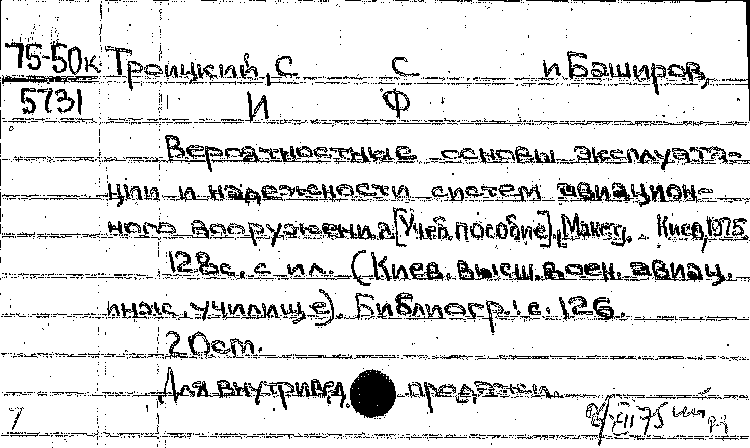 75-50к Троицкий, С С и Баширов,
5731 И Ф
Вероятностные основы эксплуата-
ции и надежности систем авиацион-
ного вооружения [Учеб. пособие]. [Макет]. - Киев, 1975
128с. с ил. (Киев. высш. воен. авиац.
инж. училище). Библиогр.: с. 126.
20см.
Для внутривед продажи.